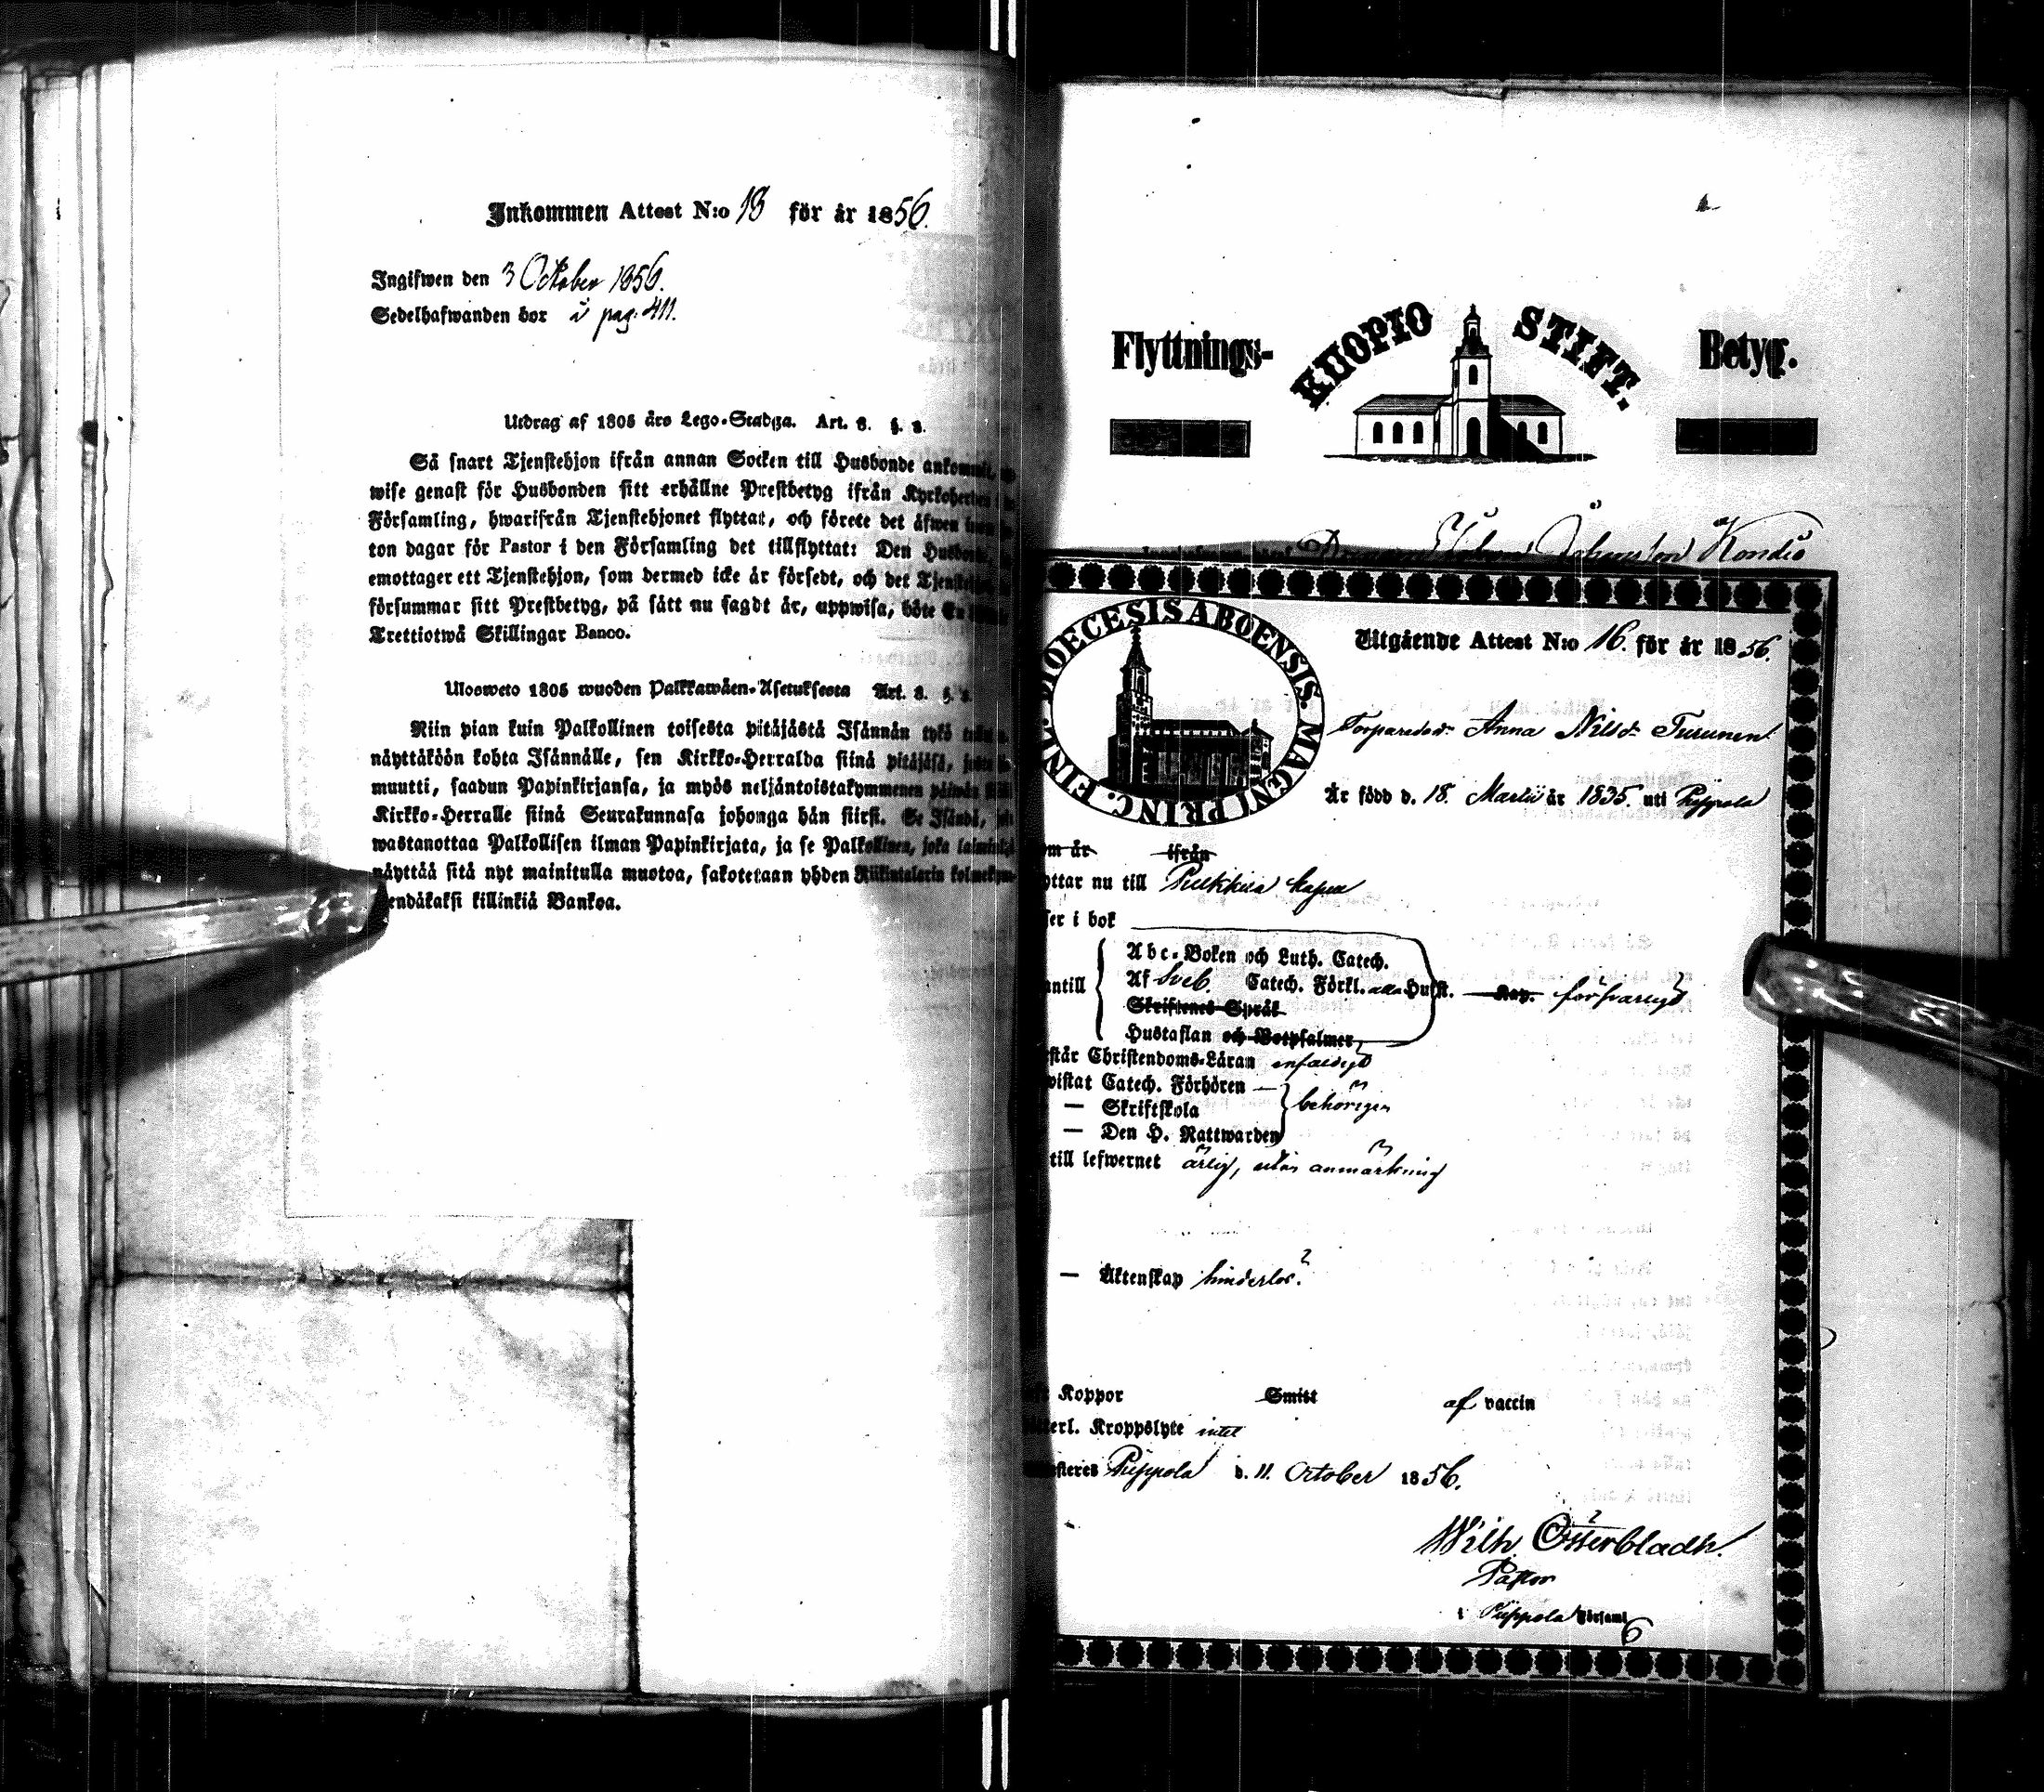 Inkommen Attest N:o 18 för år 1856.
Ingifwen den 3 October 1856.
Sedelhafwanden bor i pag. 411.
Utdrag af 1805 års Lego-Stadga. Art. 8. §. 2.
Så snart Tjenstehjon ifrån annan Socken till Husbonde ankommit,
wise genast för Husbonden sitt erhållne Prestbetyg ifrån Kyrkoherden
Församling, hwarifrån Tjenstehjonet flyttat, och förete det äfwen
ton dagar för Pastor i den Församling det tillflyttat: Den
emottager ett Tjenstehjon, som dermed icke är försedt, och det
försummar sitt Prestbetyg, på sätt nu sagdt är, uppwisa, böte En
Trettiotwå Skillingar Banco.
Ulosweto 1805 wuoden Palkkawäen-Asetuksesta Art. 8. §. 2.
Niin pian kuin Palkollinen toisesta pitäjästä Isännän tykö
näyttäköön kohta Isännälle, sen Kirkko-Herralda siinä pitäjäsä,
muutti, saadun Papinkirjansa, ja myös neljäntoistakymmenen päiwän
Kirkko-Herralle siinä Seurakunnasa johonga hän siirsi. Se Isändä,
wastanottaa Palkollisen ilman Papinkirjata, ja se Palkollinen, joka
näyttää sitä nyt mainitulla muotoa, sakotetaan yhden Riikintalerin
endäkaksi killinkiä Bankoa.
Flyttnings- KUOPIO STIFT. Betyg.
Johansson Kondio
DIOECESIS ABOENSIS. MAGNI PRINC. FINL.
Utgående Attest N:o 16. för år 1856.
Torparedr. Anna Nilsdr. Turunen
Är född d. 18. Martii år 1835. uti Pyppola
om är ifrån
yttar nu till Pulkkila kapell
ser i bok
antill
Abc-Boken och Luth. Catech.
Af Sveb. Catech. Förkl. Husst. Kap. försvarligt
Skriftenes Språk
Hustaflan och Botpsalmer,
står Christendoms-Läran enfaldigt
wistat Catech. Förhören
— Skriftskola behörigen
— Den H. Nattwarden
till lefwernet ärlig, utan anmärkning
— Äktenskap hinderlös.
Koppor Smitt af vaccin
terl. Kroppslyte intet
Pyppola d. 11. October 1856.
Wilh Österbladh.
Pastor
i Pyppola Församl